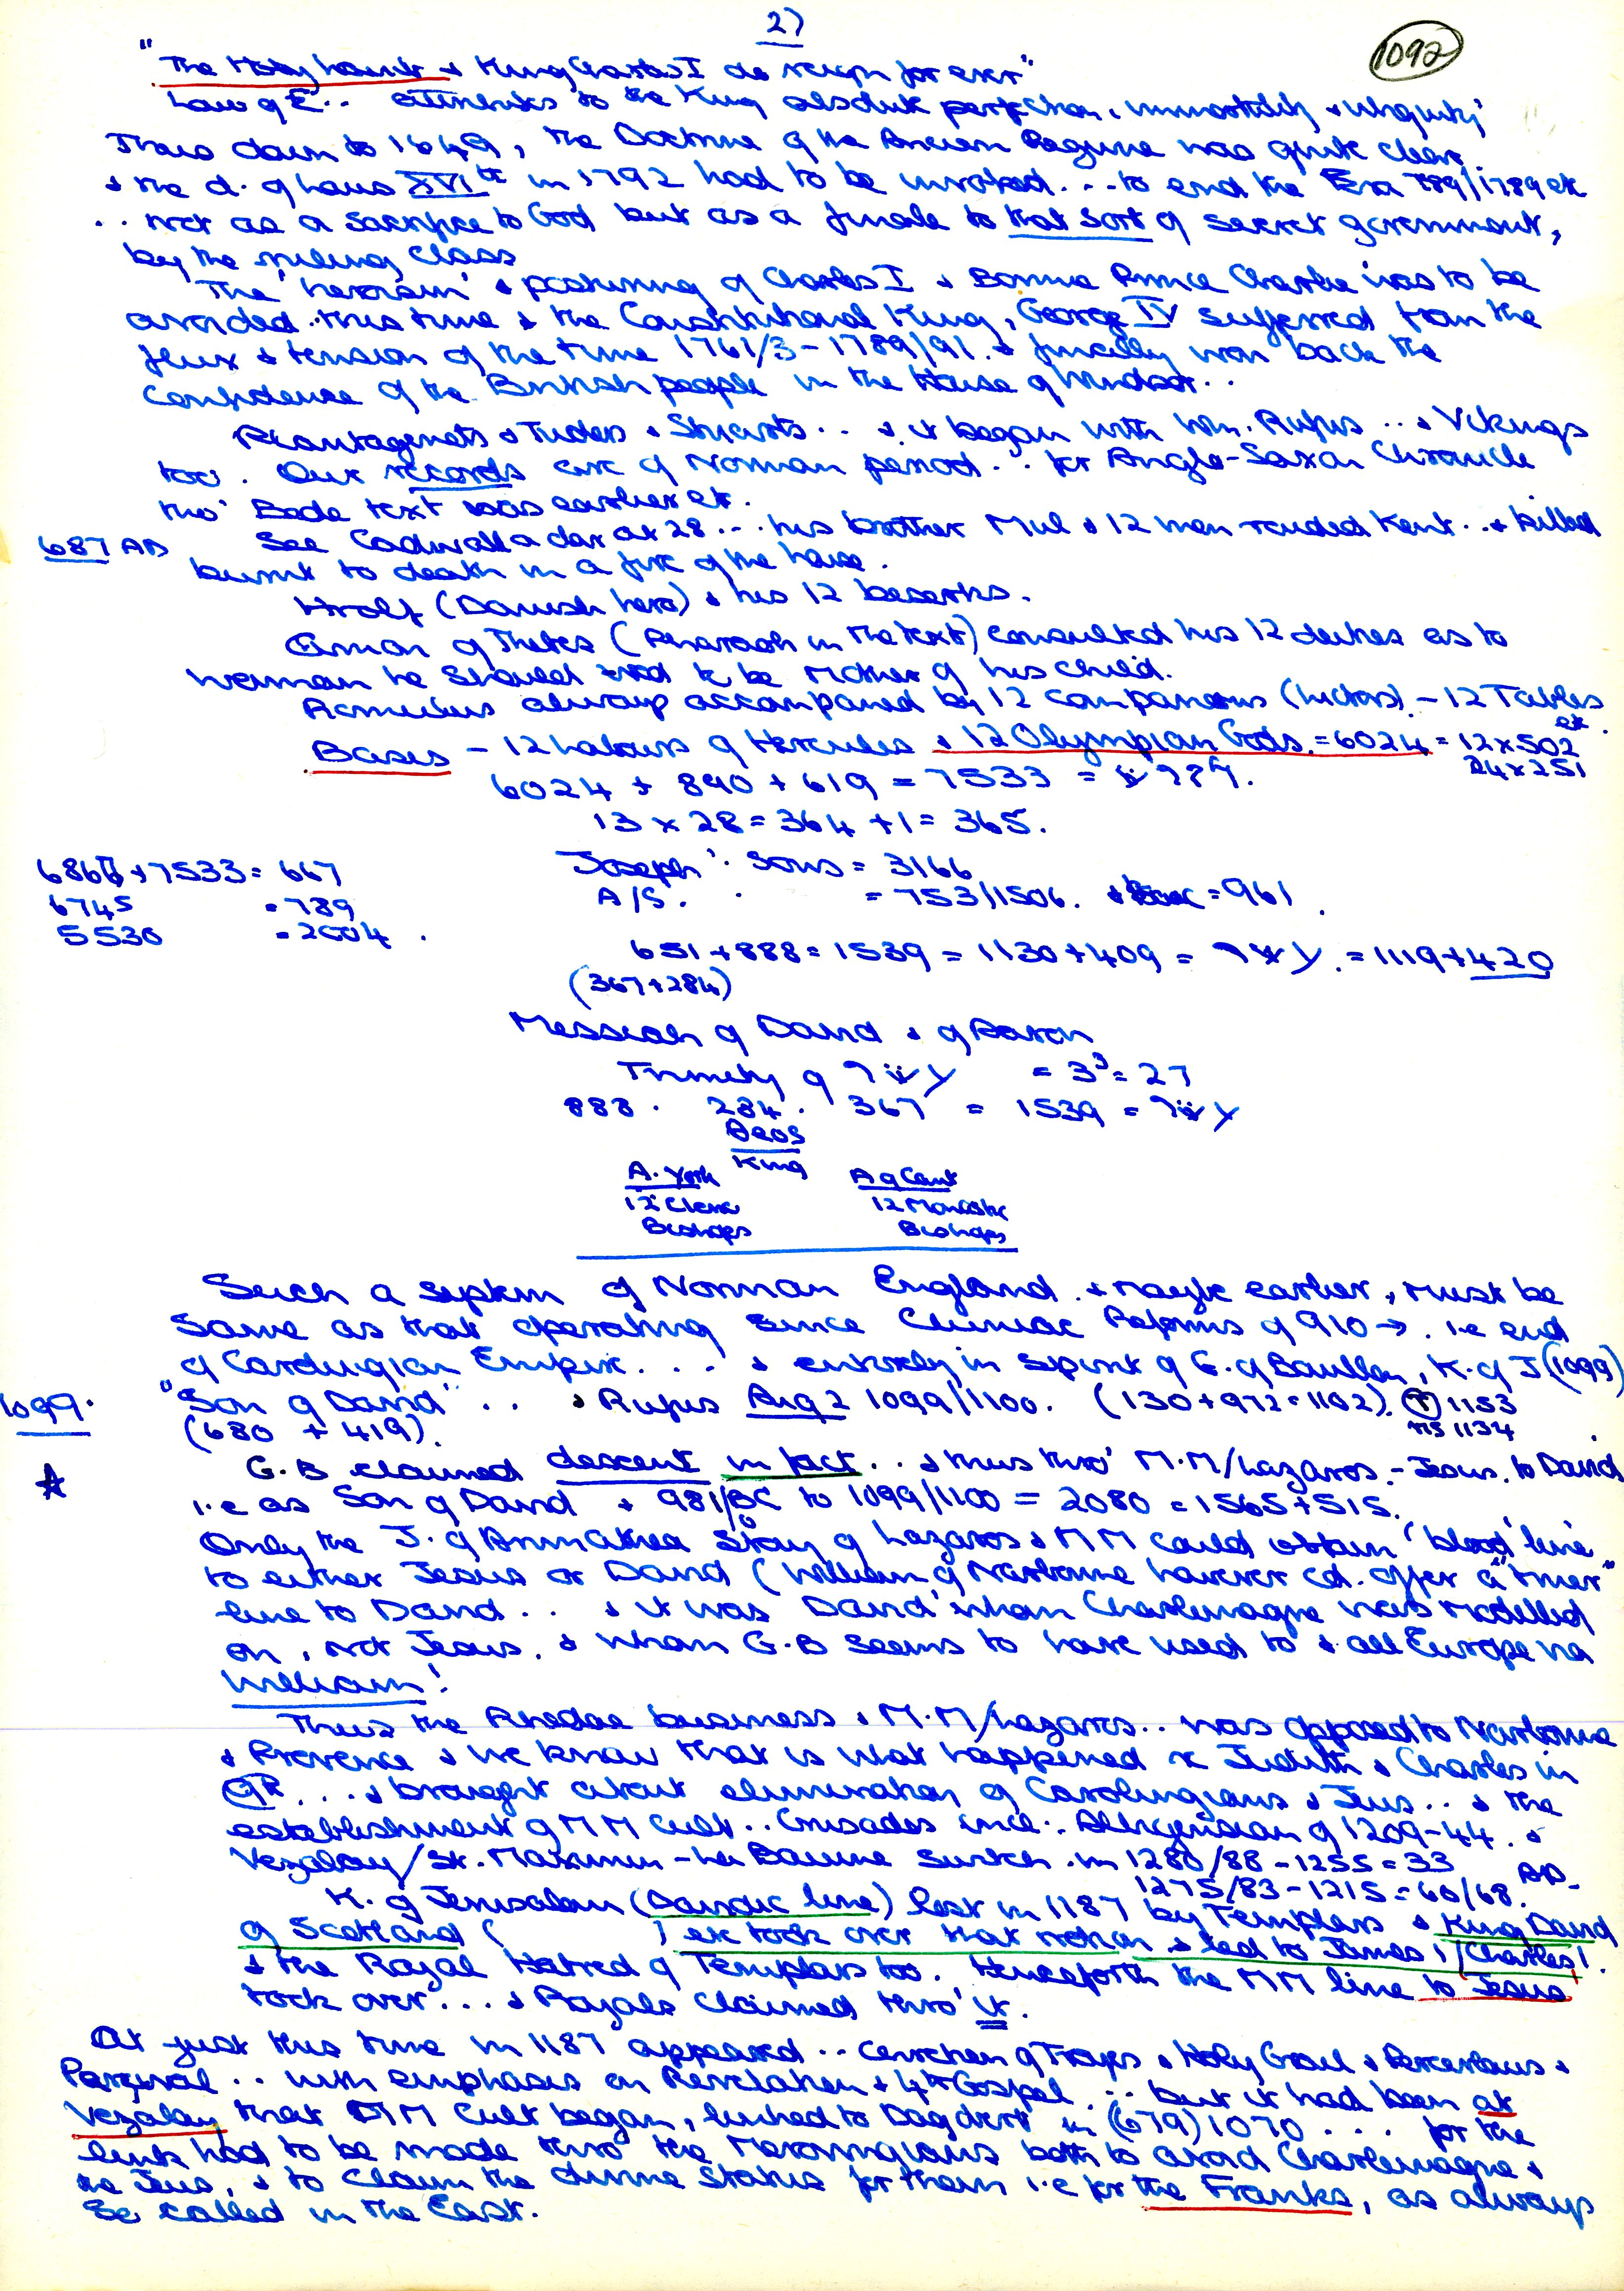 2)
1092
"The Holy & King Charles I do reign for ever"
Law of E.. attributes to the King absolute perfection, immortality & ubiquity'
Thus down to 1649, the Doctrine of the Ancien Regime was quite clear.
& the d. of Louis XVI in 1792 had to be invoked... to end the Era 789/1789 etc
.. not as a sacrifice to God but as a finale to that sort of secret government,
by the ruling class
The & posturing of Charles I & Bonnie Prince Charlie was to be
avoided this time & the Constitutional King, George IV suffered from the
flux & tension of the time 1761/3 - 1789/91. & finally won back the
confidence of the British people in the House of Windsor..
Plantagenets & Tudors & Stuarts.. & it began with Wm. Rufus .. & Vikings
too. Our records are of Norman period .. for Anglo-Saxon Chronicle
tho' Bede text was earlier etc.
687 AD See Cadwalla dar at 28... his brother Mul & 12 men raided Kent.. & killed
burnt to death in a fire of the house.
Hrolf (Danish hero) & his 12 beserks.
Amon of Thebes (Pharaoh in the text) consulted his 12 deities as to
woman he should to be Mother of his child.
Romulus always accompanied by 12 companions (lictors) - 12 Tables
etc.
Bases - 12 labours of Hercules & 12 Olympian Gods. = 6024 = 12 x 502
24 x 251
6024 + 890 + 619 = 7533
13 x 28 = 364 + 1 = 365.
7533 = 667
Joseph' Sons = 3166
6745 = 789
A/S. = 753/1506. = 961.
5530 = 2004.
651 + 888 = 1539 = 1130 + 409 = = 1119 + 420
(367 + 284)
Messiah of David & of Aaron
Trinity of = 3³ = 27
888. 284. 367 = 1539 =
King
A. York A of Cant
12 12 Monastic
Bishops Bishops
Such a system of Norman England & maybe earlier, must be
same as that operating since Cluniac Reforms of 910 →. i.e end
of Carolingian Empire... & entirely in spirit of G. of Bouillon, K. of J (1099)
1099. "Son of David' .. & Rufus Aug 2 1099/1100. (130 + 972 = 1102). (T) 1153
(680 + 419). 1134
G.B claimed descent in fact.. & thus thro' M.M/Lazaros - Jesus. to David
i.e as Son of David & 981/0 BC to 1099/1100 = 2080 = 1565 + 515.
Only the J. of Arimathea story of Lazaros & MM could obtain 'blood' line
to either Jesus or David (William of Narbonne however cd. offer a "truer"
line to David.. & it was David whom Charlemagne was modelled
on, not Jesus. & whom G.B seems to have used to & all Europe via
William!
Thus the Rhedae business & M.M/Lazaros.. was opposed to Narbonne
& Provence & we know that is what happened re Judith & Charles in
... & brought about elimination of Carolingians & Jews.. & the
establishment of MM cult.. Crusades incl. Albigensian of 1209-44. &
Vezalay/St. Maximin - La Baume switch in 1280/88 - 1255 = 33
1275/83 - 1215 = 60/68. AD.
K. of Jerusalem (Davidic line) lost in 1187 by Templars & King David
of Scotland ( ) etc took over that notion & led to James I/Charles I.
& the Royal Hatred of Templars too. Henceforth the MM line to Jesus
took over... & Royals claimed thro' it.
At just this time in 1187 appeared.. of Troyes & Holy Grail & Perceslaus &
Parzival.. with emphases on Revelation & 4th Gospel.... but it had been at
Vezalay that MM Cult began, linked to Dagobert in (679) 1070.... for the
link had to be made thro' the Merovingians both to avoid Charlemagne &
the Jews, & to claim the divine status for them i.e for the Franks, as always
so called in the East.